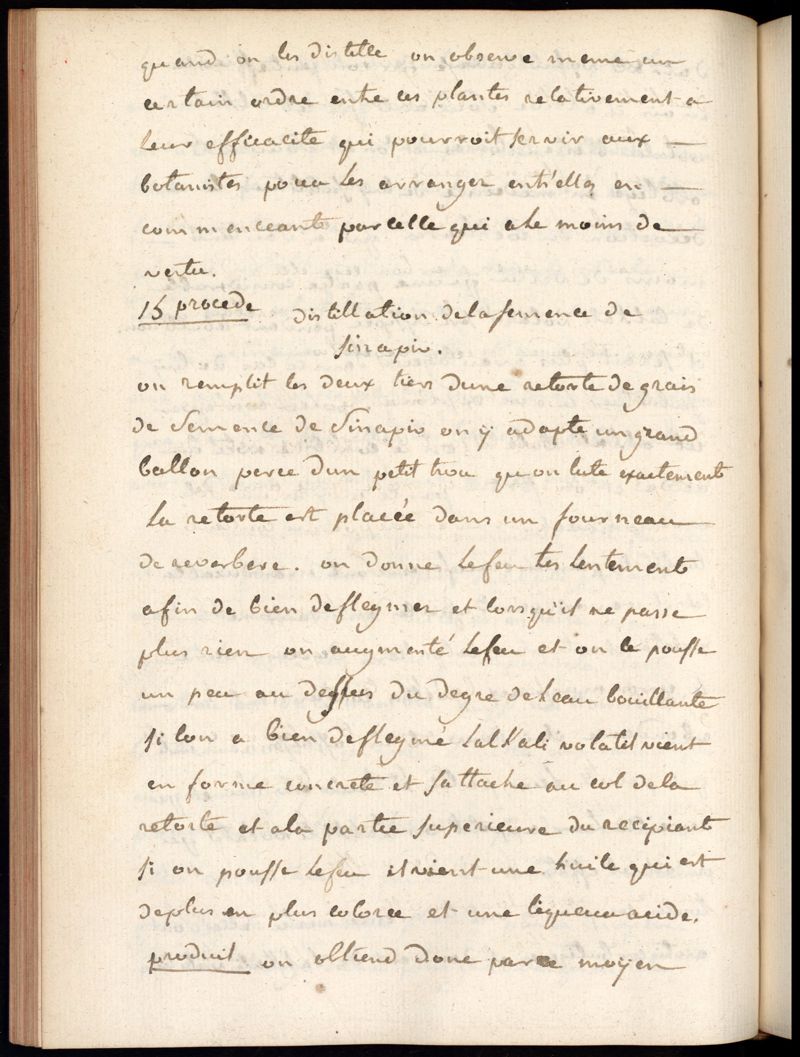 quand on les distille on observe meme un
certain ordre entre ces plantes relativement a
leur efficacité qui pourroit servir aux
botanistes pour les arranger entr'elles en
commenceant par celle qui a le moins de
vertu.
15 procede distillation de la semence de
sinapis.
on remplit les deux tiers d'une retorte de grais
de semence de Sinapis on y adapte un grand
ballon percé dun petit trou qu on lute exactement
la retorte est placée dans un fourneau
de reverbere. on donne le feu tes lentement
afin de bien deflegmer et lorsqu'il ne passe
plus rien on augmenté le feu et on le pousse
un peu au dessus du degre de leau bouillante
si lon a bien deflegmé lalkali volatil vient
en forme concrete et sattache au col de la
retorte et a la partie superieure du recipiant
si on pousse le feu il vient une huile qui est
de plus en plus coloree et une liqueur acide.
produit on obtiend donc par ce moyen